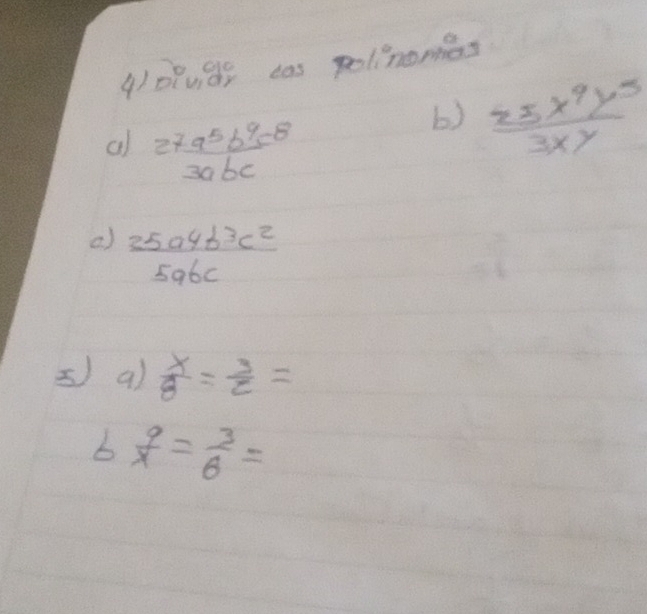 4) Dividir los Polinomios
a) 27a⁵b⁹c⁸ / 3abc
b) 25x⁹y⁵ / 3xy
c) 25a4b³c² / 5abc
5) a) x/8 = 3/2 =
b 9/x = 3/6 =